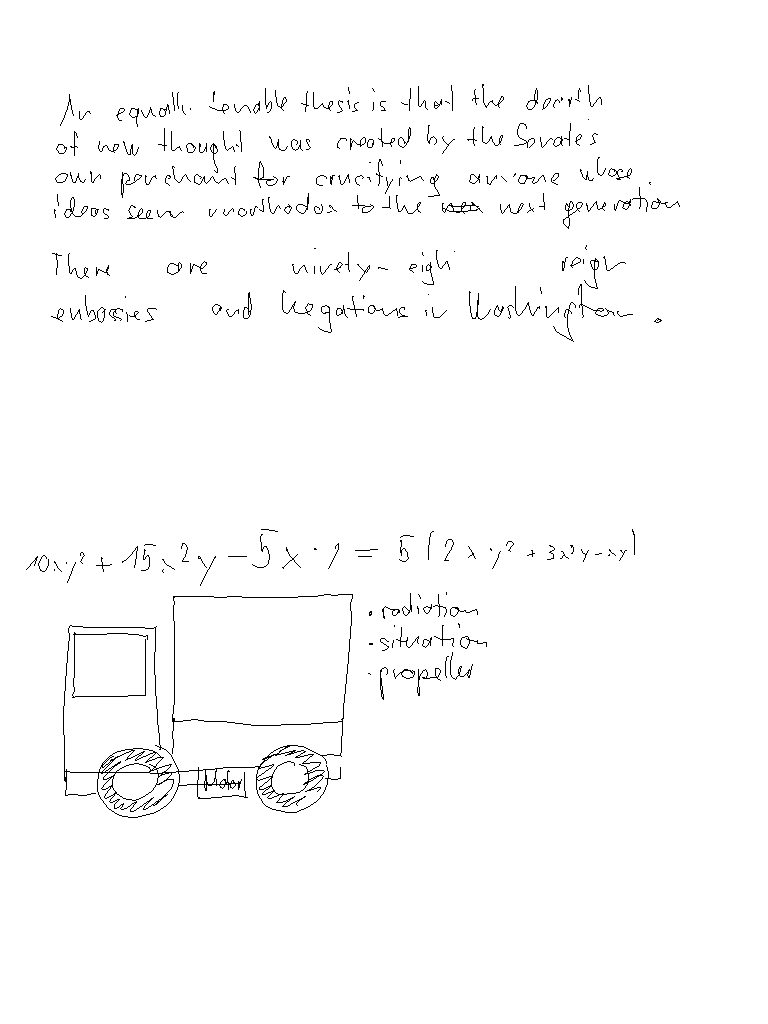 An equally tenable thesis is that the dearth
of new thought was created by the
our penchant for crucifying anyone whose
ideas seem unorthodox to the next generation.
There are ninety-eigh reign
embassies and legations in Washington.
10xy² + 15x²y - 5x·y = 5(2xy² + 3x²y - xy)
• radiation
• situation
• propeller
Motor